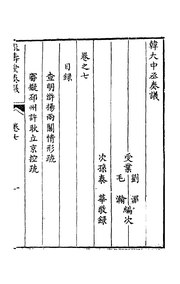 韓大中丞奏議
受業劉
毛瀚編次
次孫泰華敬錄
卷之七
目錄
查明滸揚兩關情形疏
審擬邳州許耿立京控疏
奏議
卷七